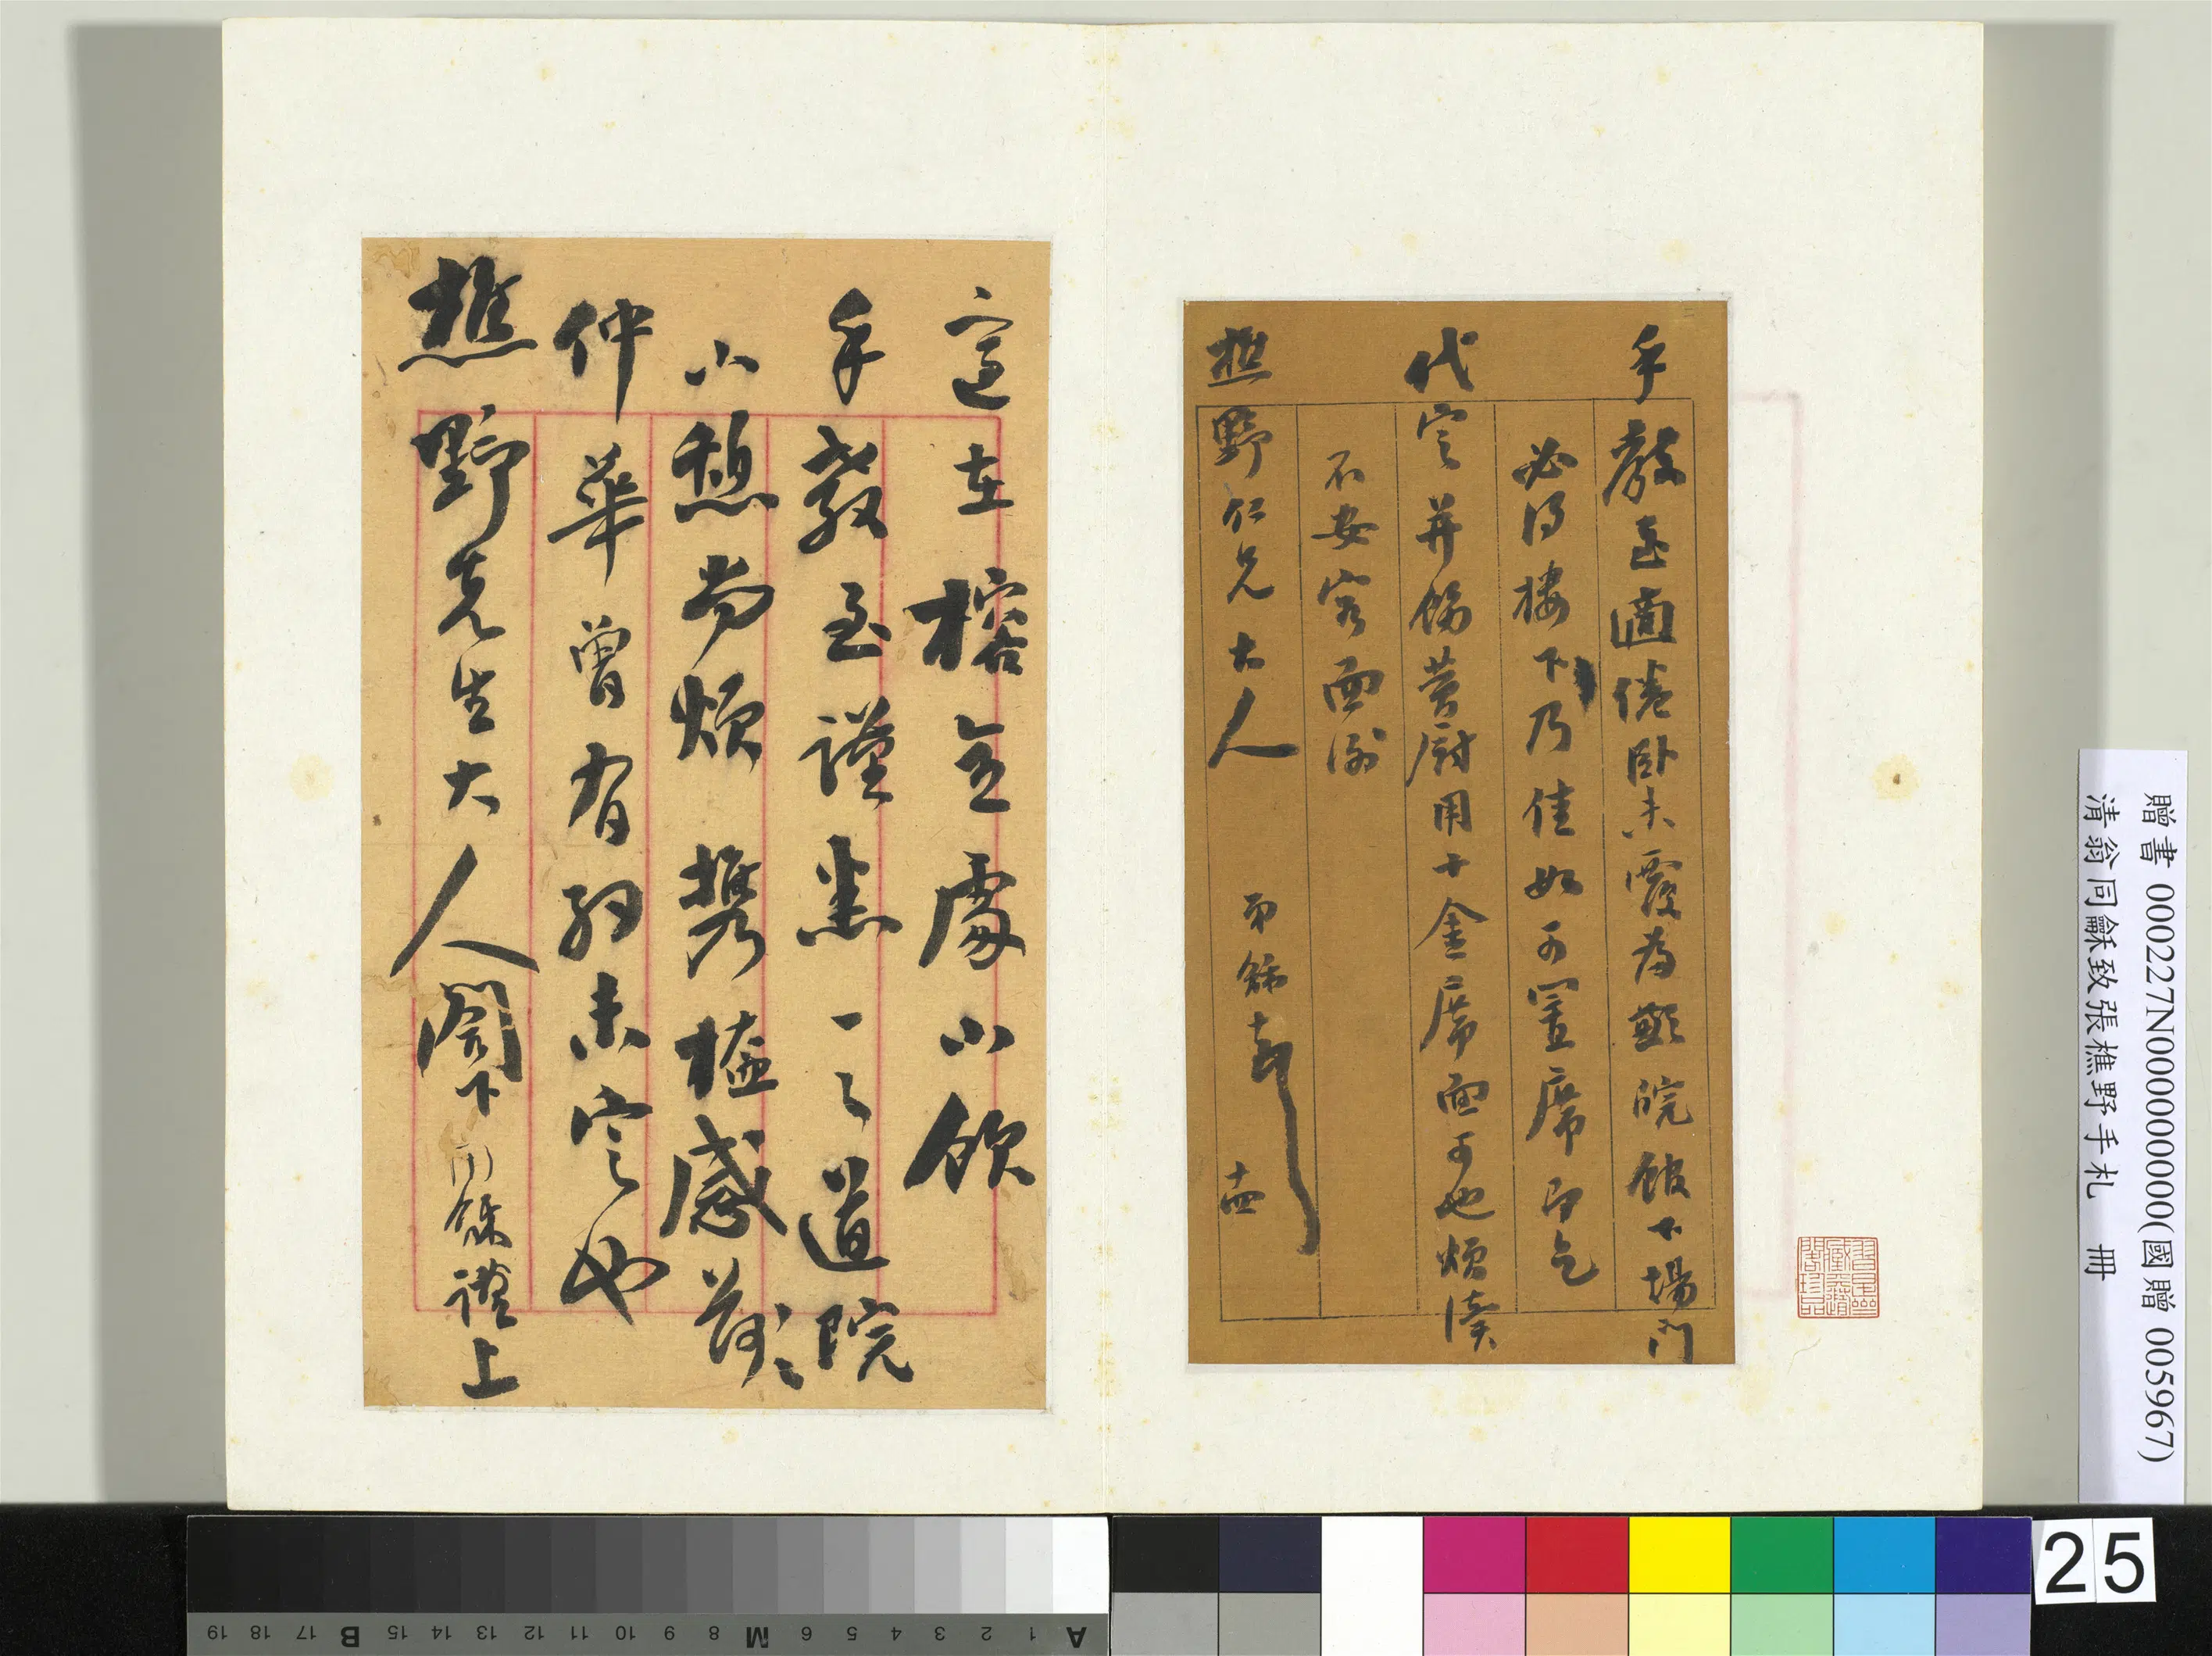 手教至適倦臥未覆為歉皖館下場門
必得樓下乃佳如可置席即乞
代定并飭菅廚用十金席面可也煩瀆
不安容面謝
樵野仁兄大人 弟龢頓首 十四
適在榕立處小飲
手教至謹悉一之道院
小憩尚煩携榼感荷
仲華曾有約未定也
樵野先生大人閣下 龢謹上
贈書 000227N000000000(國贈 005967)
清翁同龢致張樵野手札 冊
25
A 1 2 3 4 5 6 M 8 9 10 11 12 13 14 15 B 17 18 19